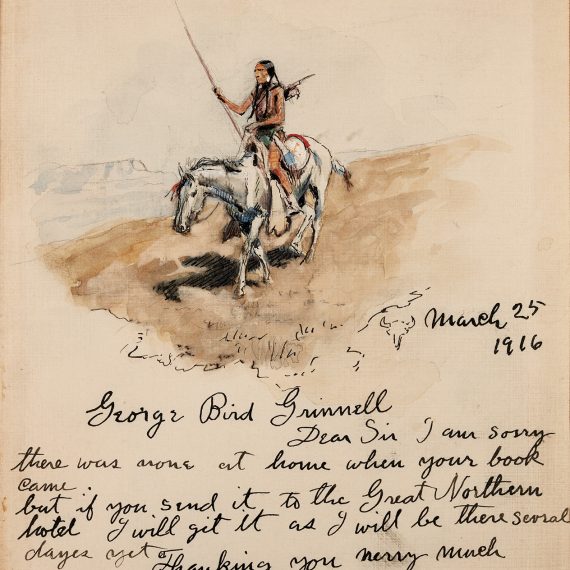 March 25
1916
George Bird Grinnell
Dear Sir I am sorry
there was none at home when your book
came.
but if you send it to the Great Northern
hotel I will get it as I will be there several
dayes yet
Thanking you verry much